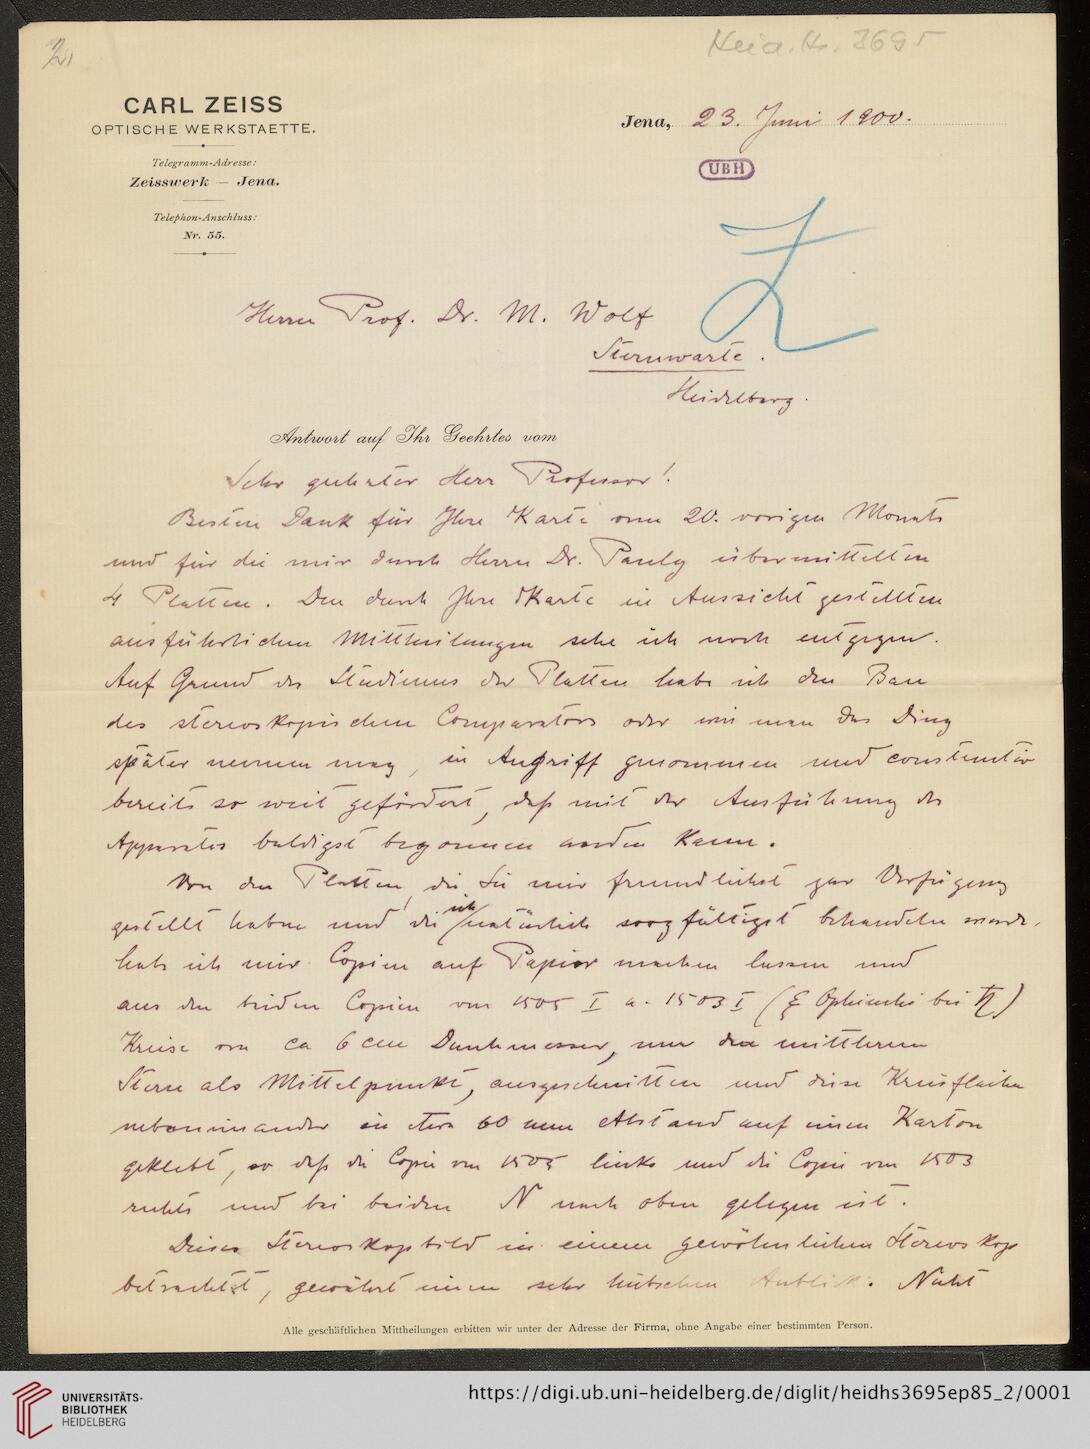 2,
Heid. Hs. 3695
CARL ZEISS
OPTISCHE WERKSTAETTE.
Telegramm-Adresse:
Zeisswerk — Jena.
Telephon-Anschluss:
Nr. 55.
Jena, 23. Juni 1900.
UBH
Z
Herrn Prof. Dr. M. Wolf
Sternwarte.
Heidelberg.
Antwort auf Ihr Geehrtes vom
Sehr geehrter Herr Professor!
Besten Dank für Ihre Karte vom 20. vorigen Monats
und für die mir durch Herrn Dr. Pauly übermittelten
4 Platten. Den durch Ihre Karte in Aussicht gestellten
ausführlichen Mittheilungen sehe ich noch entgegen.
Auf Grund des Studiums der Platten habe ich den Bau
des stereoskopischen Comparators oder wie man das Ding
später nennen mag, in Angriff genommen und constructiv
bereits so weit gefördert, daß mit der Ausführung des
Apparates baldigst begonnen werden kann.
Von den Platten, die Sie mir freundlichst zur Verfügung
gestellt haben und die ich natürlich sorgfältigst behandeln werde,
habe ich mir Copien auf Papier machen lassen und
aus den beiden Copien von 1505 I u. 1503 I (ξ Ophiuchi bei ♄)
Kreise von ca 6 cm Durchmesser, um den mittleren
Stern als Mittelpunkt, ausgeschnitten und diese Kreisflächen
nebeneinander in etwa 60 mm Abstand auf einen Karton
geklebt, so daß die Copie von 1505 links und die Copie von 1503
rechts und bei beiden N nach oben gelegen ist.
Dieses Stereoskopbild in einem gewöhnlichen Stereoskop
betrachtet, gewährt einen sehr hübschen Anblick. Nicht
Alle geschäftlichen Mittheilungen erbitten wir unter der Adresse der Firma, ohne Angabe einer bestimmten Person.
UNIVERSITÄTS-
BIBLIOTHEK
HEIDELBERG
https://digi.ub.uni-heidelberg.de/diglit/heidhs3695ep85_2/0001